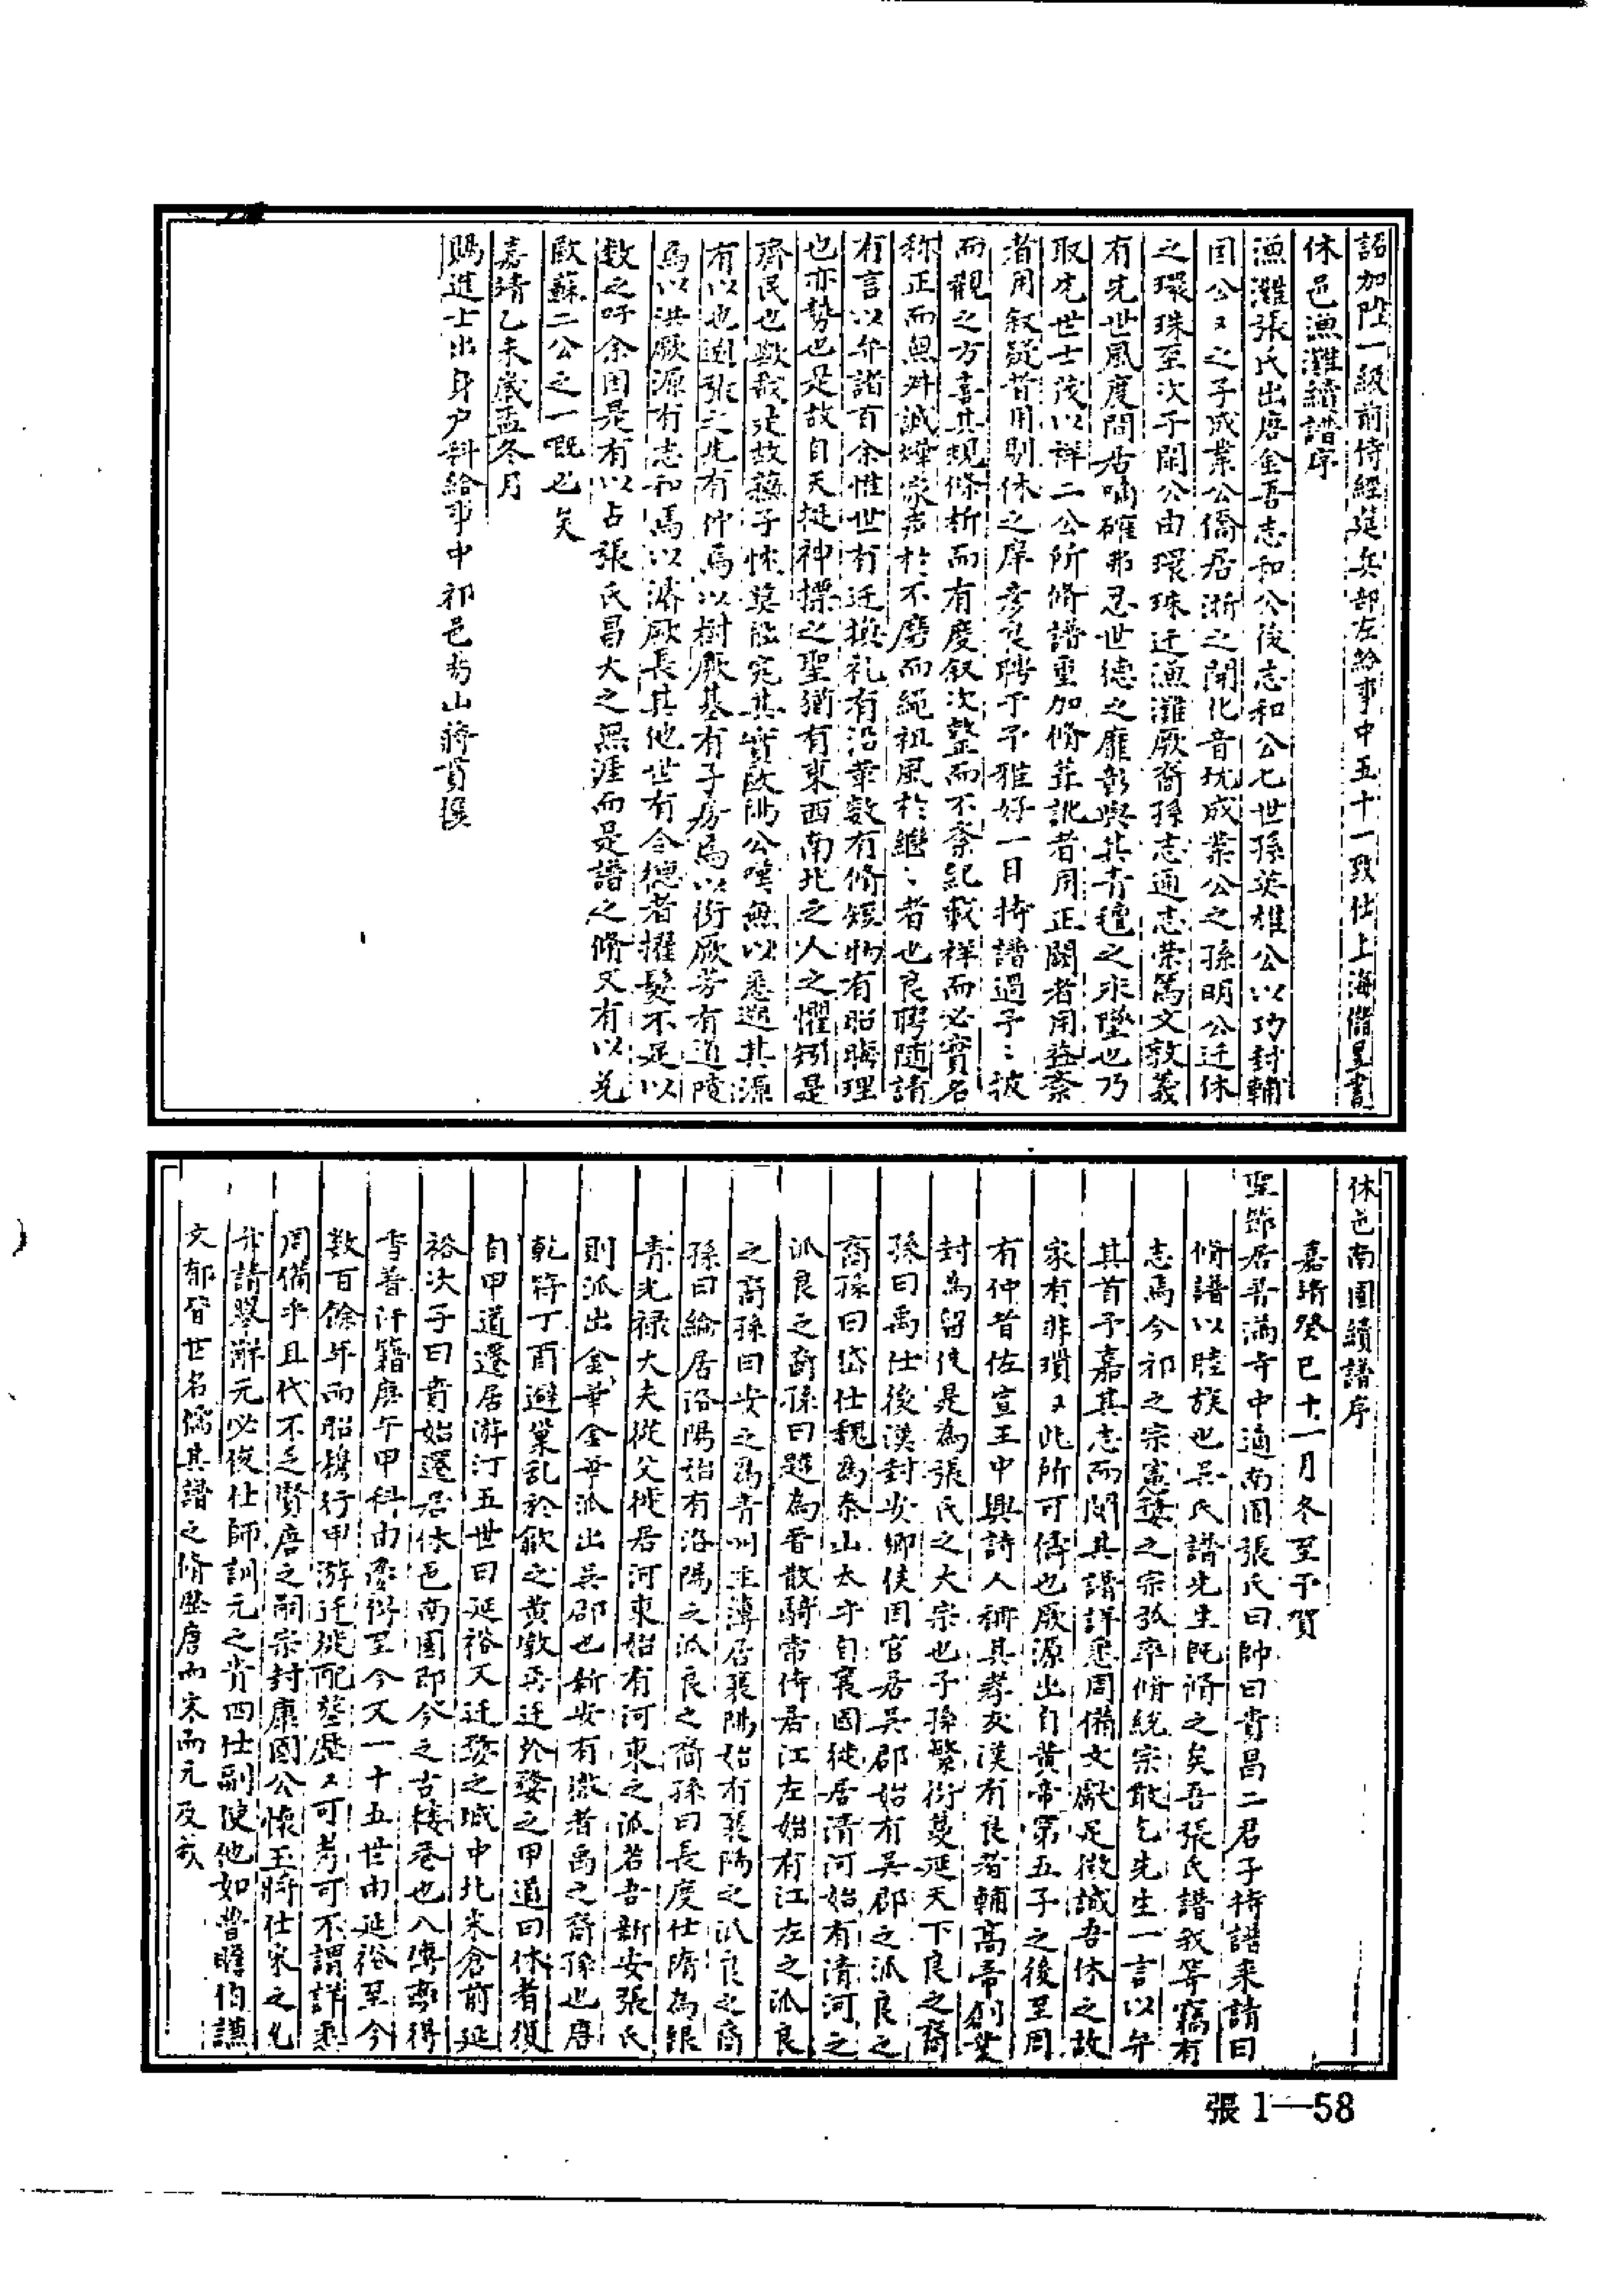 詔加陞一級前侍經筵兵部左給事中五十一致仕上海儲昱書
休邑漁灘續譜序
漁灘張氏出唐金吾志和公後志和公七世孫英雄公以功封輔
国公〻之子成業公僑居浙之開化音坑成業公之孫明公迁休
之環珠至次子閏公由環珠迁漁灘厥裔孫志通志荣篤文敦義
有先世風度間居喃確弗忍世德之靡彰與其青氊之永墜也乃
取先世士茂以祥二公所脩譜重加脩葺訛者用正闕者用益紊
者用叙疑者用別休之庠彥良聘予予雅好一日持譜過予〻披
而觀之方喜其規條析而有度叙次整而不紊紀載祥而必實名
称正而無舛誠燁家声於不磨而繩祖風於繼〻者也良聘随請
有言以弁諸首余惟世有迁換礼有沿革数有脩短物有昭晦理
也亦勢也是故自天挺神摽之聖猶有東西南北之人之懼矧是
齊民也歟哉是故蘇子恠莫能究其實歐陽公嘆無以悉遡其源
有以也迺張之先有仲焉以樹厥基有子房焉以衍厥芳有道陵
焉以洪厥源有志和焉以濬厥長其他世有令德者擢髮不足以
数之吁余因是有以占張氏昌大之無涯而是譜之脩又有以兆
歐蘇二公之一嘅也矣
嘉靖乙未歲孟冬月
賜進士出身户科給事中祁邑 山蔣貫撰
休邑南園續譜序
嘉靖癸巳十一月冬至予賀
聖節居普滿寺中適南園張氏曰帥曰貴昌二君子持譜來請曰
脩譜以睦族也吳氏譜先生既脩之矣吾張氏譜我等竊有
志焉今祁之宗憲婺之宗弘率脩統宗敢乞先生一言以弁
其首予嘉其志而閱其譜詳悉周備文獻足徵誠吾休之故
家有非瑣〻此所可儔也厥源出自黄帝第五子之後至周
有仲者佐宣王中興詩人稱其孝友漢有良者輔高帝創業
封為留侯是為張氏之大宗也子孫繁衍蔓延天下良之裔
孫曰禹仕後漢封安鄉侯因官居吳郡始有吳郡之派良之
裔孫曰岱仕魏為泰山太守自襄國徙居清河始有清河之
派良之裔孫曰題為晋散騎常侍居江左始有江左之派良
之裔孫曰安之為青州主薄居襄陽始有襄陽之派良之裔
孫曰綸居洛陽始有洛陽之派良之裔孫曰長度仕隋為銀
青光禄大夫從父徙居河東始有河東之派若吾新安張氏
則派出金華金華派出吳郡也新安有徽者禹之裔孫也唐
乾符丁酉避巢乱於歙之黄墩再迁於婺之甲道曰休者復
自甲道遷居游汀五世曰延裕又迁婺之城中北米倉前延
裕次子曰賁始遷居休邑南園即今之古樓巷也八傳
雪著汗籍庚午甲科由 得至今又一十五世由延裕至今
数百餘年而昭穆行甲游迁徙配塋歷〻可考可不謂詳悉
周備乎且代不乏賢唐之嗣宗封康國公懷玉將仕宋之九
 請舉觧元必俊仕師訓元之貴四仕副使他如普瞻伯謙
文郁皆世名儒其譜之脩歷唐而宋而元及我
張1—58